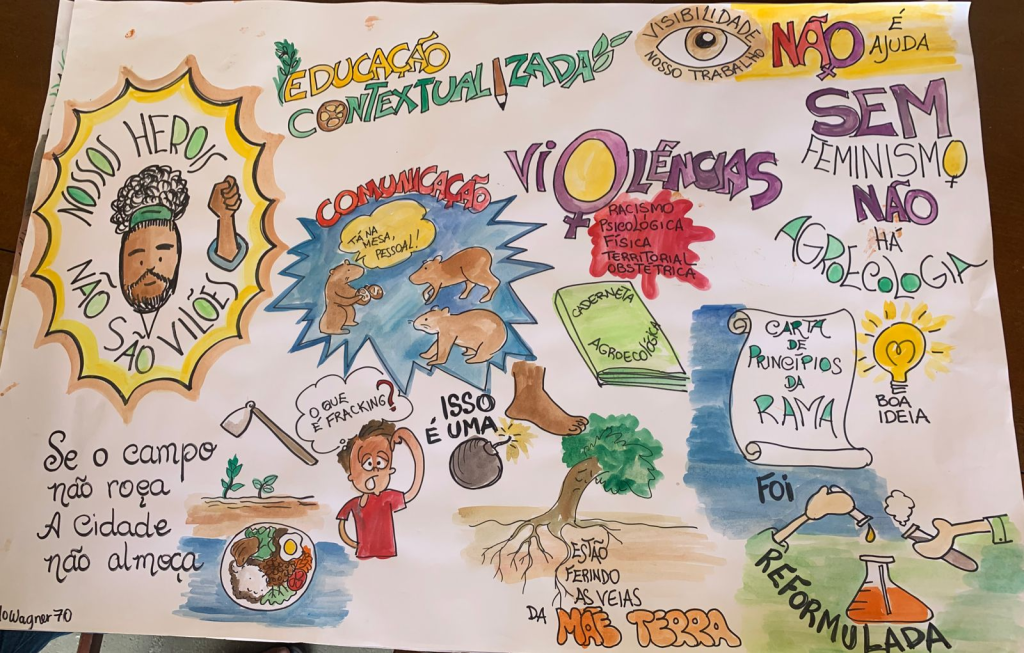 VISIBILIDADE
NOSSO TRABALHO
NÃO
É
AJUDA
EDUCAÇÃO
CONTEXTUALIZADA
NOSSOS HEROIS
NÃO SÃO VILÕES
COMUNICAÇÃO
TÁ NA
MESA,
PESSOAL!
VIOLÊNCIAS
RACISMO
PSICOLÓGICA
FÍSICA
TERRITORIAL
OBSTÉTRICA
SEM
FEMINISMO
NÃO
HÁ
AGROECOLOGIA
CADERNETA
AGROECOLÓGICA
CARTA
DE
PRINCÍPIOS
DA
RAMA
BOA
IDEIA
FOI
REFORMULADA
O QUE
É FRACKING?
ISSO
É UMA
Se o campo
não roça
A Cidade
não almoça
ESTÃO
FERINDO
AS VEIAS
DA MÃE TERRA
loWagner70